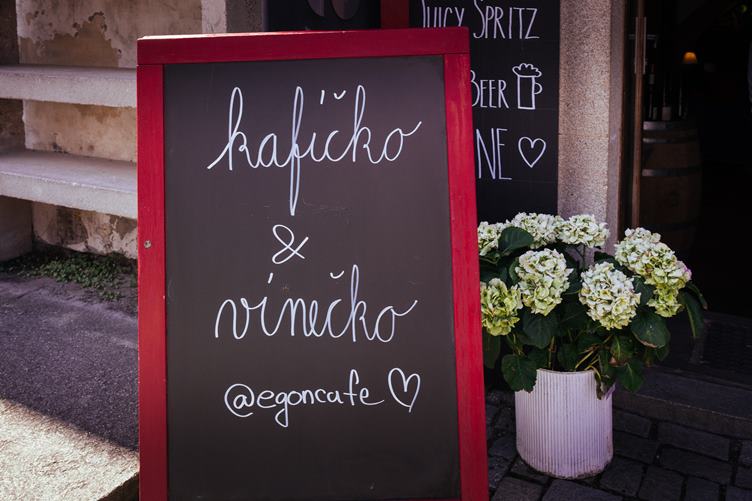 kafíčko
&
vínečko
@egoncafe ♡
JUICY SPRITZ
BEER